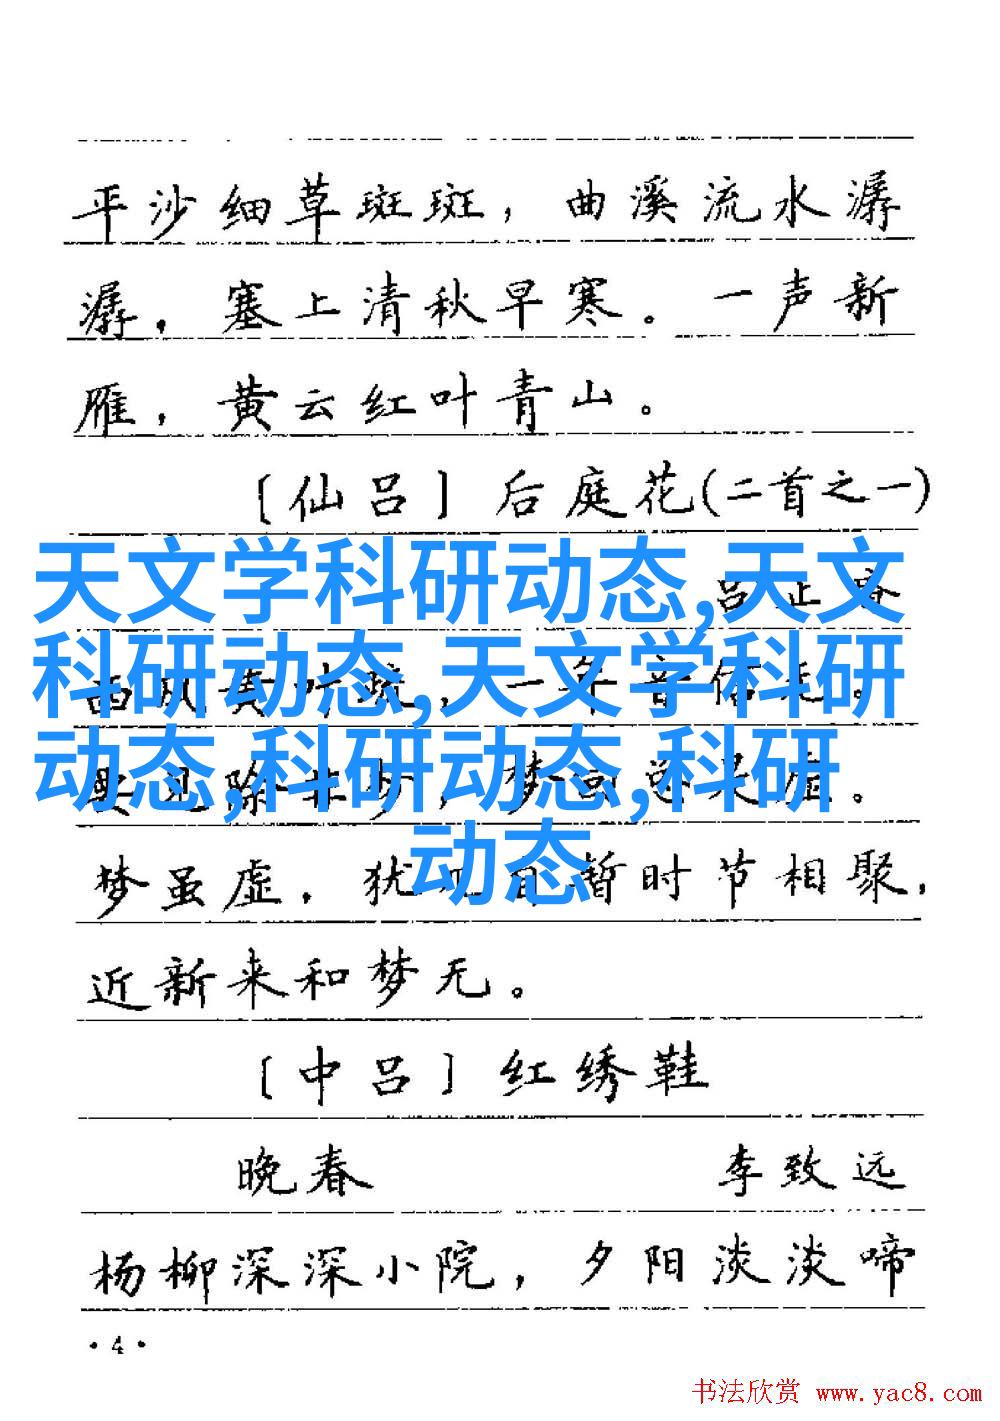 平沙细草斑斑，曲溪流水潺
潺，塞上清秋早寒。一声新
雁，黄云红叶青山。
〔仙吕〕后庭花(二首之一)
天文学科研动态,天文
科研动态,天文学科研
动态,科研动态,科研
动态
梦虽虚，犹 暂时节相聚，
近新来和梦无。
〔中吕〕红绣鞋
晚春 李致远
杨柳深深小院，夕阳淡淡啼
·4·
书法欣赏 www.yac8.com